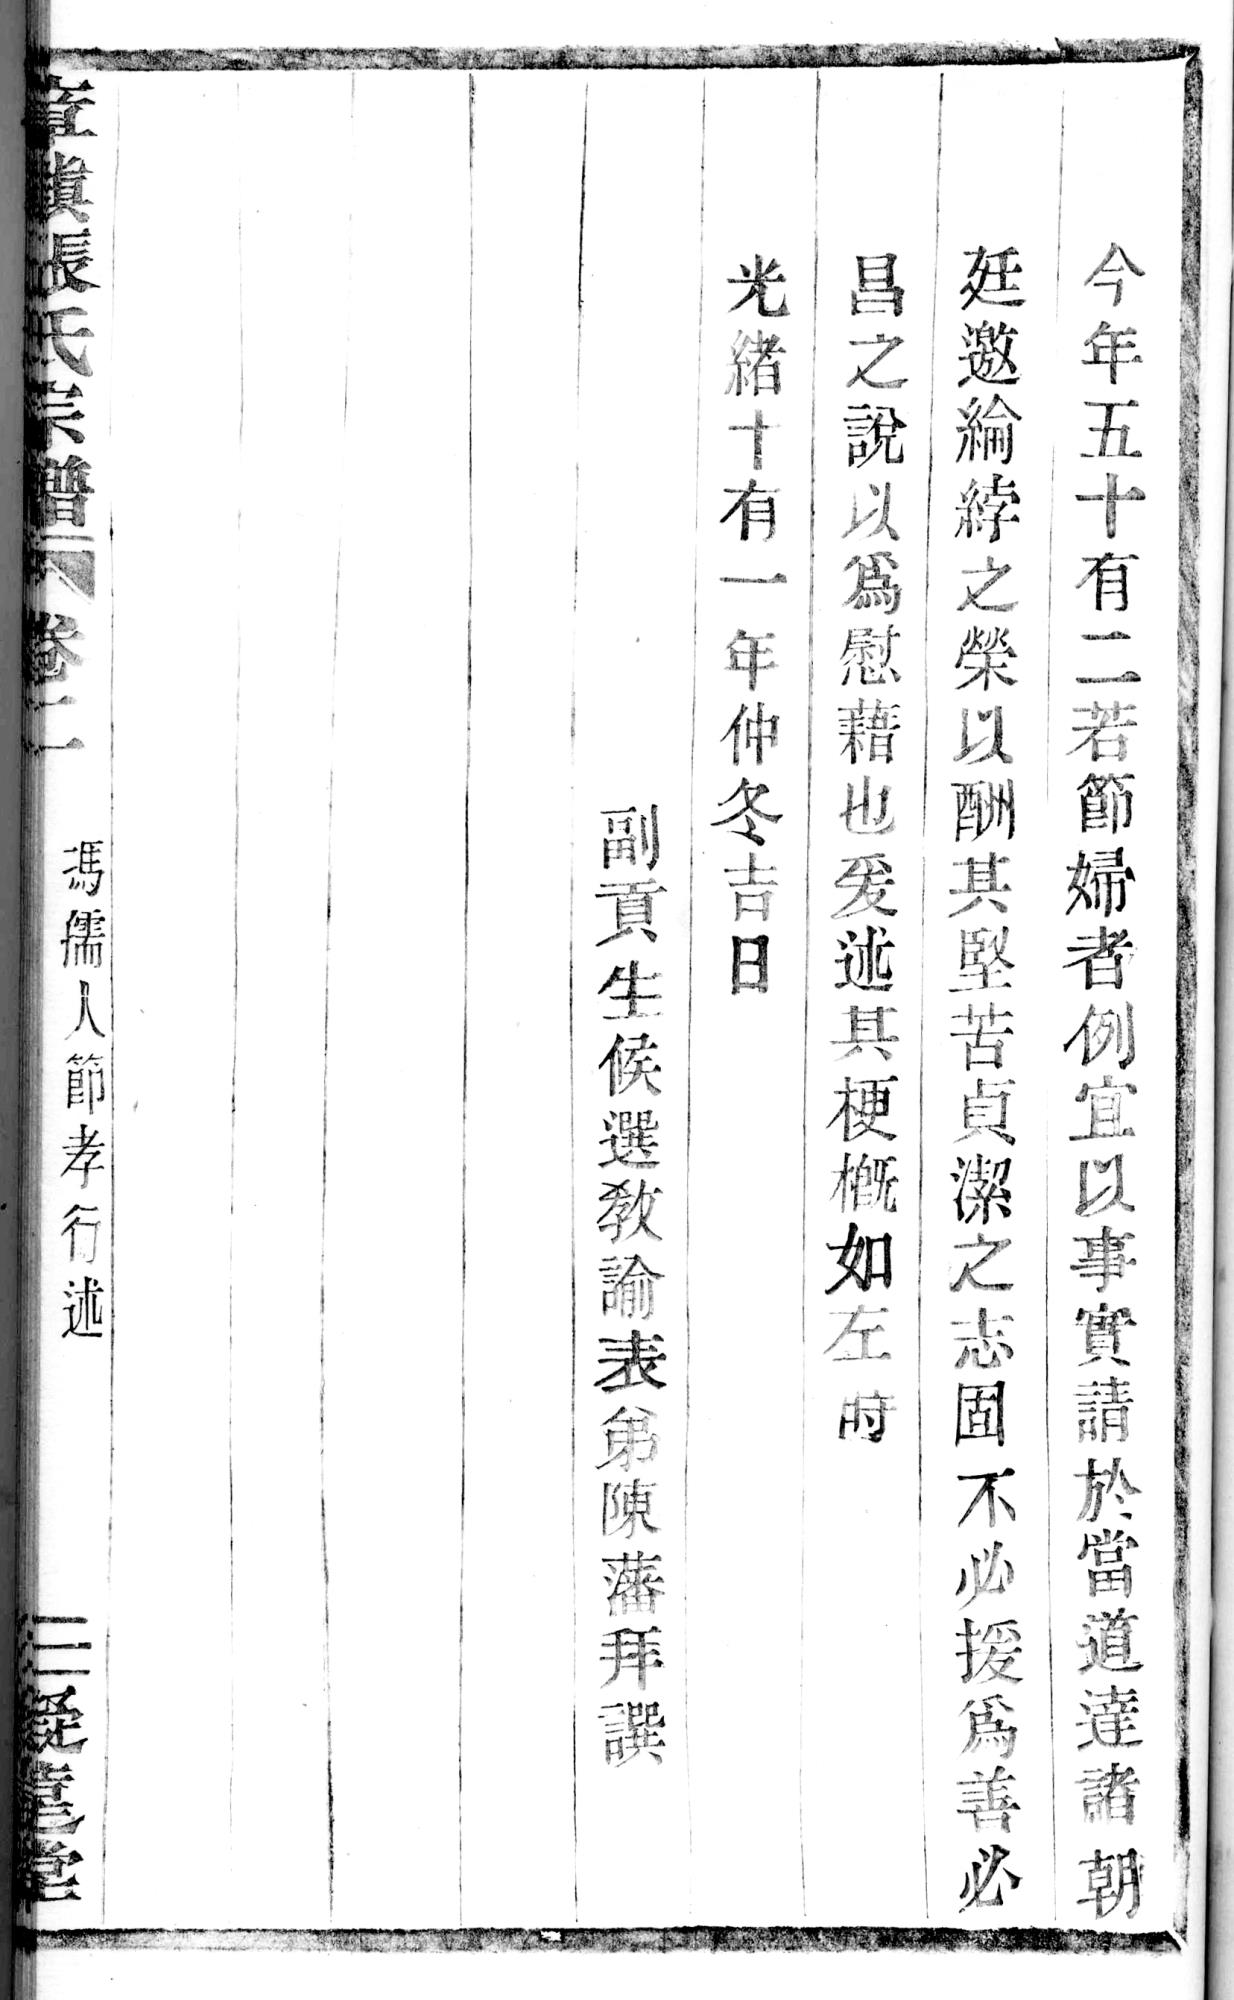 今年五十有二若節婦者例宜以事實請於當道達諸朝
廷邀綸綍之榮以酬其堅苦貞潔之志固不必援爲善必
昌之說以爲慰藉也爰述其梗槪如左時
光緒十有一年仲冬吉日
副貢生候選敎諭表弟陳藩拜譔
張氏宗譜 卷二 馮孺人節孝行述 三 堂